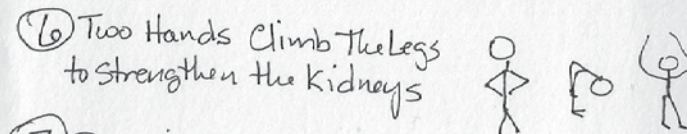 ⑥ Two Hands Climb The Legs
to Strengthen the Kidneys